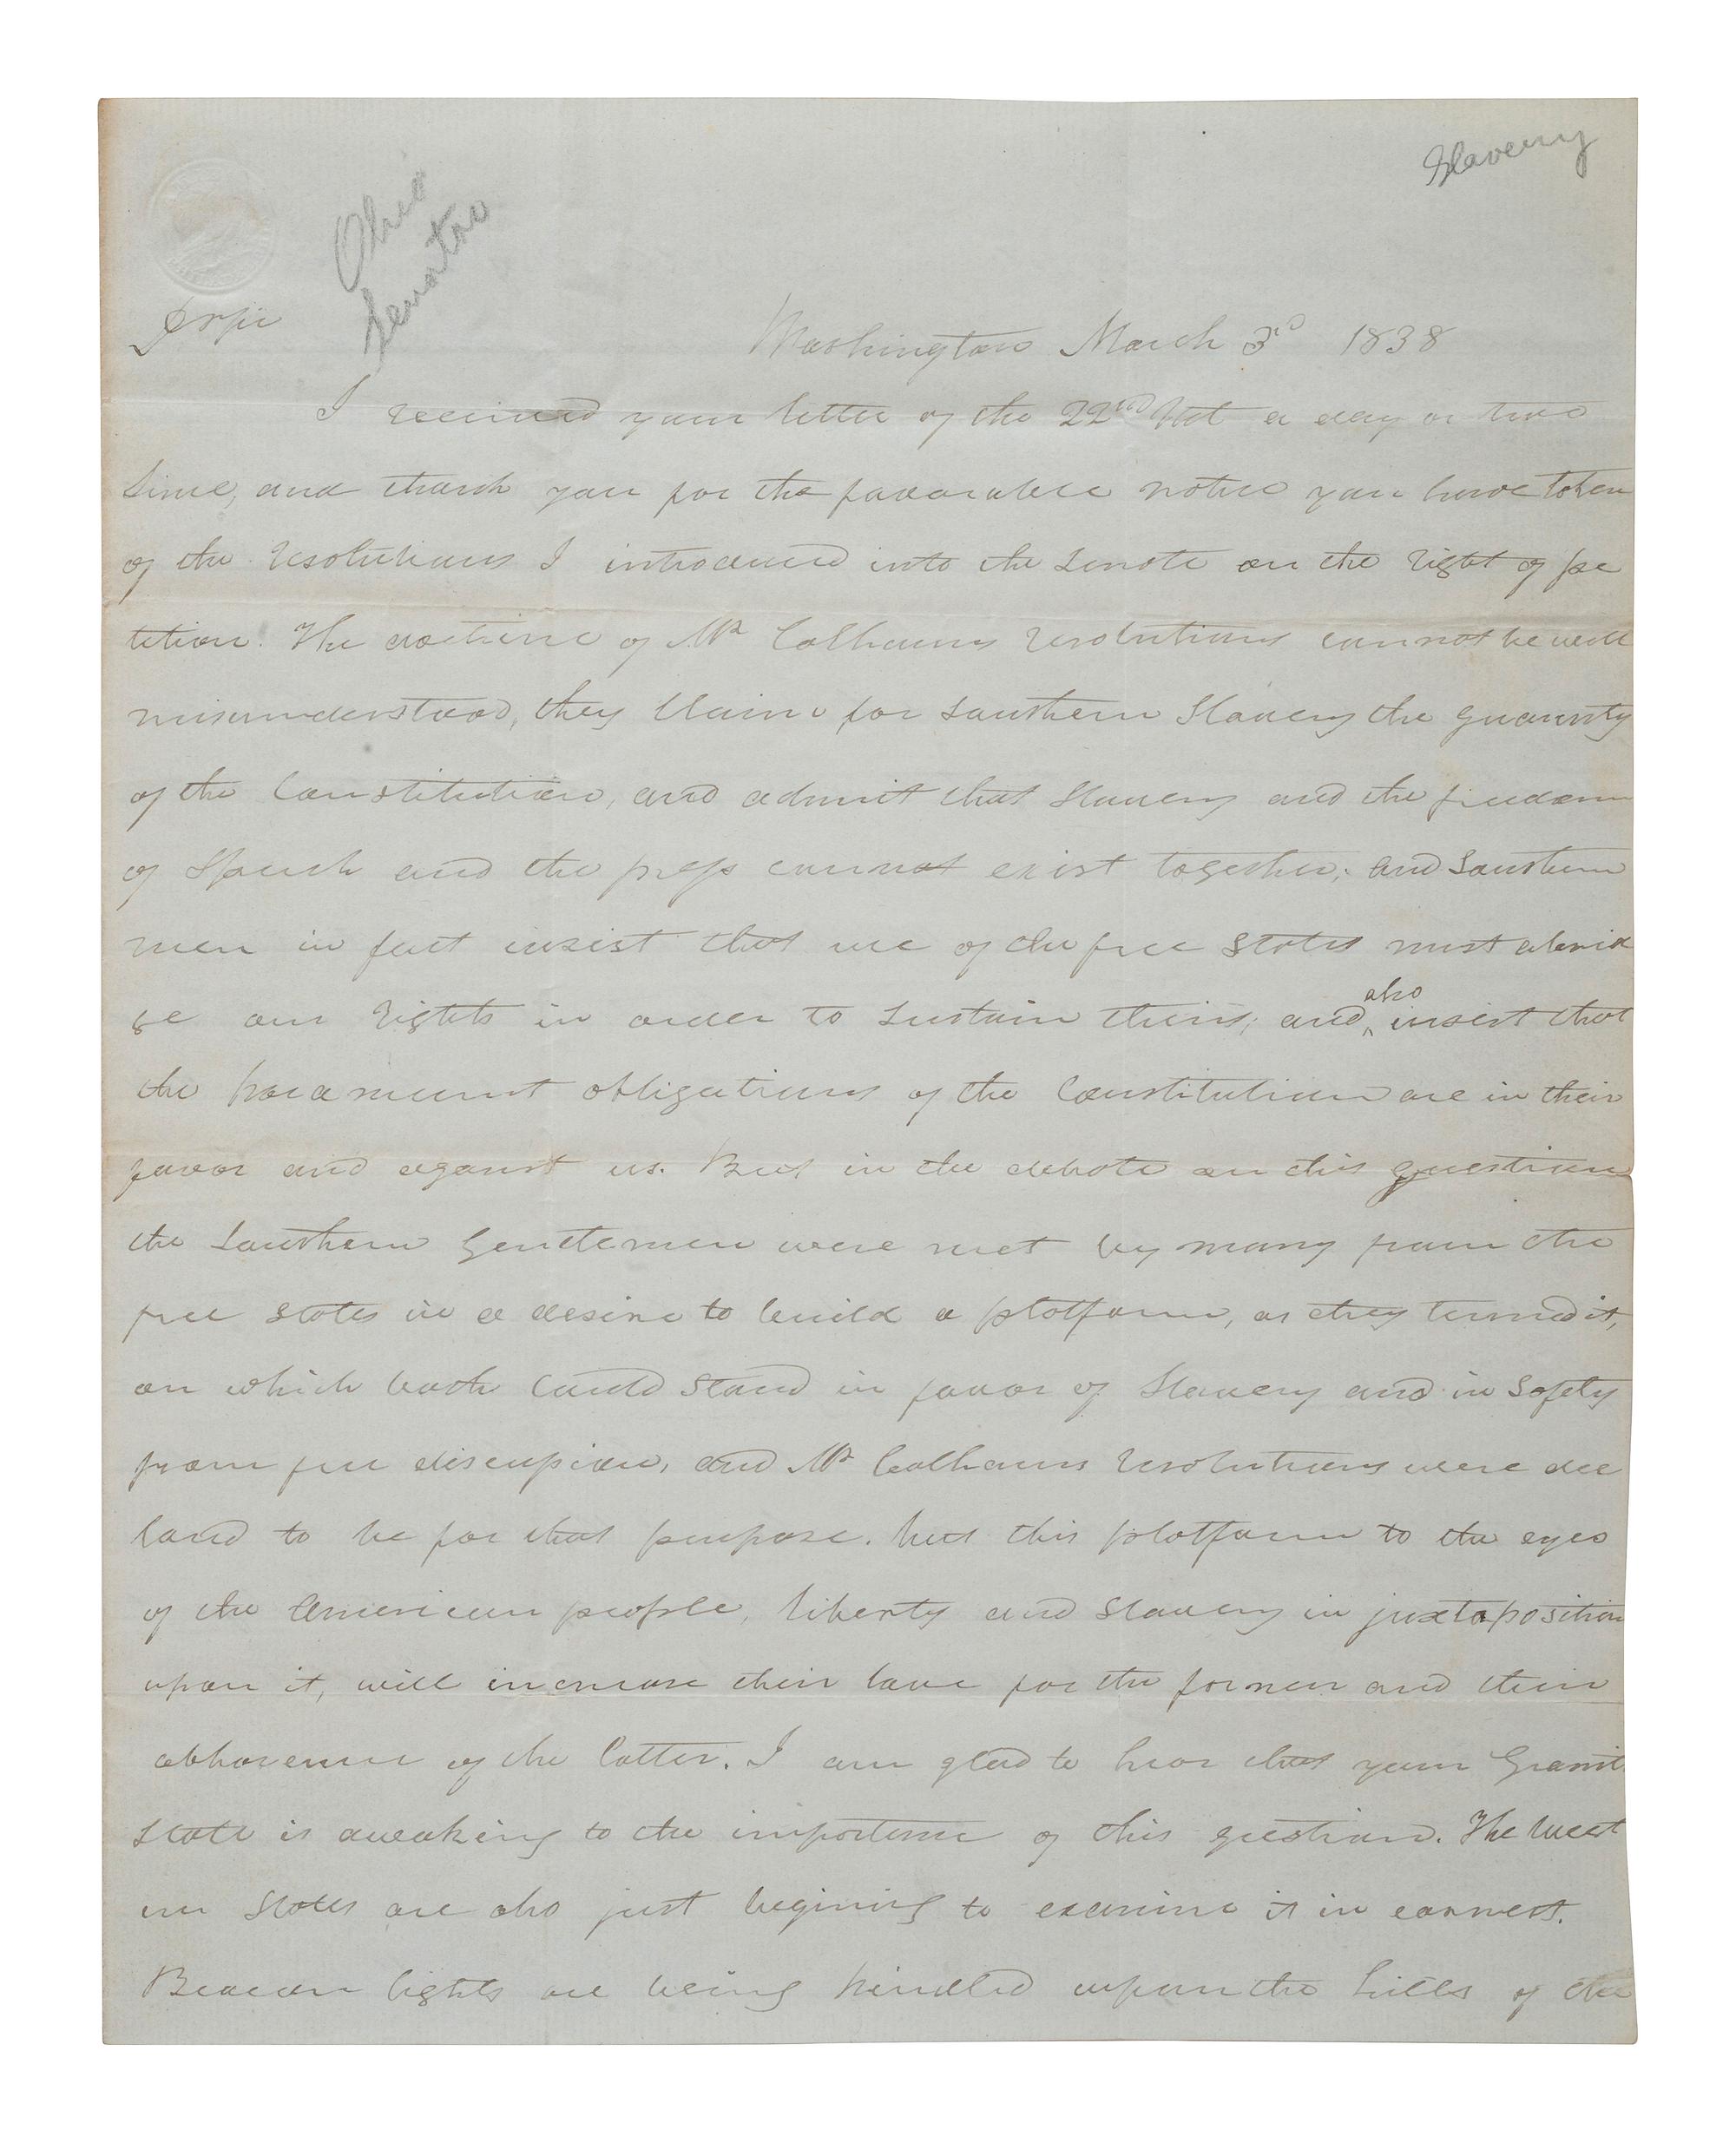 Slavery
Ohio
Senator
Washington March 3rd 1838
I received your letter of the 22nd Ult a day or two
since, and thank you for the favorable notice you have taken
of the resolutions I introduced into the Senate on the right of pe
tition. The doctrine of Mr Calhouns resolutions cannot be well
misunderstood, they claim for Southern Slavery the guaranty
of the Constitution, and admit that Slavery and the freedom
of Speech and the press cannot exist together; and Southern
men in fact insist that we of the free States must abrid
ge our rights in order to sustain theirs; and also insist that
the paramount obligations of the Constitution are in their
favor and against us. But in the debate on this question
the Southern Gentlemen were met by many from the
free States in a desire to build a platform, as they termed it,
on which both could stand in favor of Slavery and in Safety
from free discussion, and Mr Calhouns resolutions were dec
lared to be for that purpose. but this platform to the eyes
of the American people, liberty and Slavery in juxtaposition
upon it, will increase their love for the former and their
abhorence of the latter. I am glad to hear that your Granite
State is awaking to the importance of this question. The West
ern States are also just begining to examine it in earnest.
Beacon lights are being kindled upon the hills of the